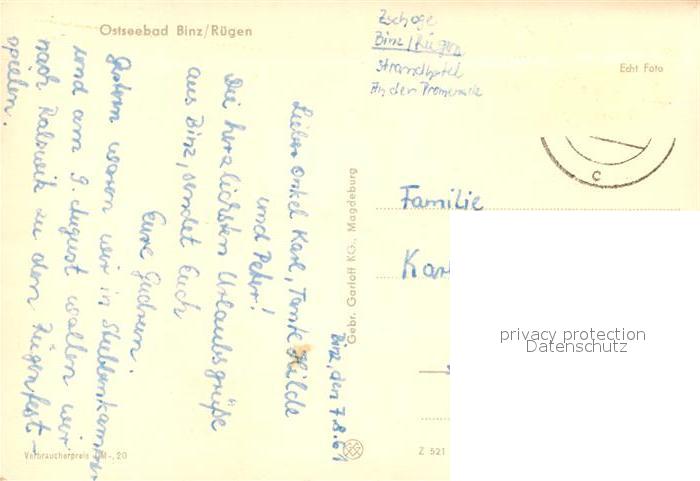 Ostseebad Binz/Rügen
Zschoge
Binz/Rügen
Strandhotel
An der Promenade
Echt Foto
C
Binz, den 7.8.61
Lieber Onkel Karl, Tante Hilde
und Peter!
Die herzlichsten Urlaubsgrüße
aus Binz, sendet Euch
Eure Gudrun.
Gestern waren wir in Stubbenkammer
und am 9. August wollen wir
nach Ralswiek zu den Rügenfest-
spielen.
Gebr. Garloff KG., Magdeburg
Familie
Kar
privacy protection
Datenschutz
Verbraucherpreis DM -,20
Z 521